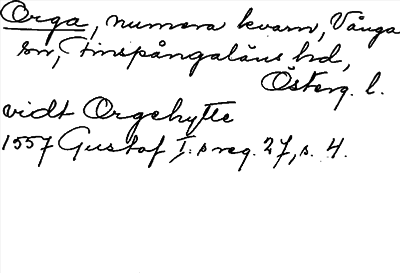 Orga, numera kvarn, Vånga
sn, Finspångaläns hd,
Österg. l.
vidt Orgehytte
1557 Gustaf I:s reg. 27, s. 4.